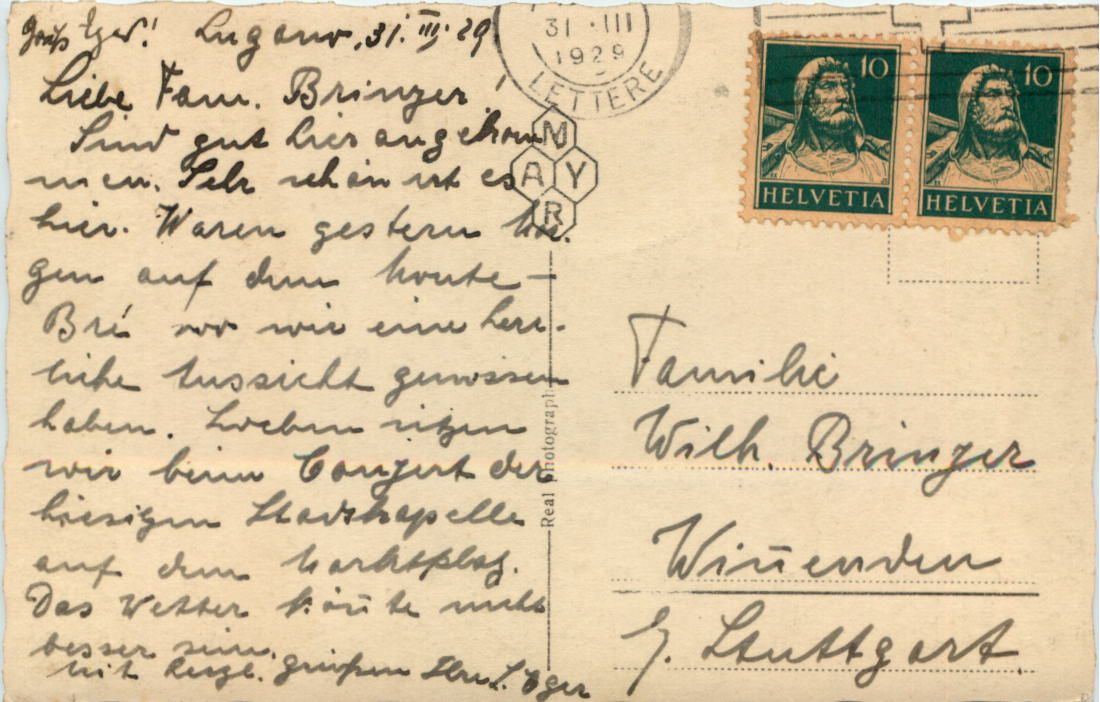 Lugano, 31. III. 29
Liebe Fam. Bringer!
Sind gut hier angekom
men. Sehr schön ist es
hier. Waren gestern Mor.
gen auf dem Monte-
Bré wo wir eine herr-
liche Aussicht genossen
haben. Soeben sitzen
wir beim Conzert der
hiesigen Stadtkapelle
auf dem Marktplatz.
Das Wetter kön̄te nicht
besser sein.
Mit grüßen
31 · III
1929
LETTERE
M
A Y
R
10
HELVETIA
10
HELVETIA
Real Photograph
Familie
Wilh. Bringer
Win̄enden
Stuttgart.